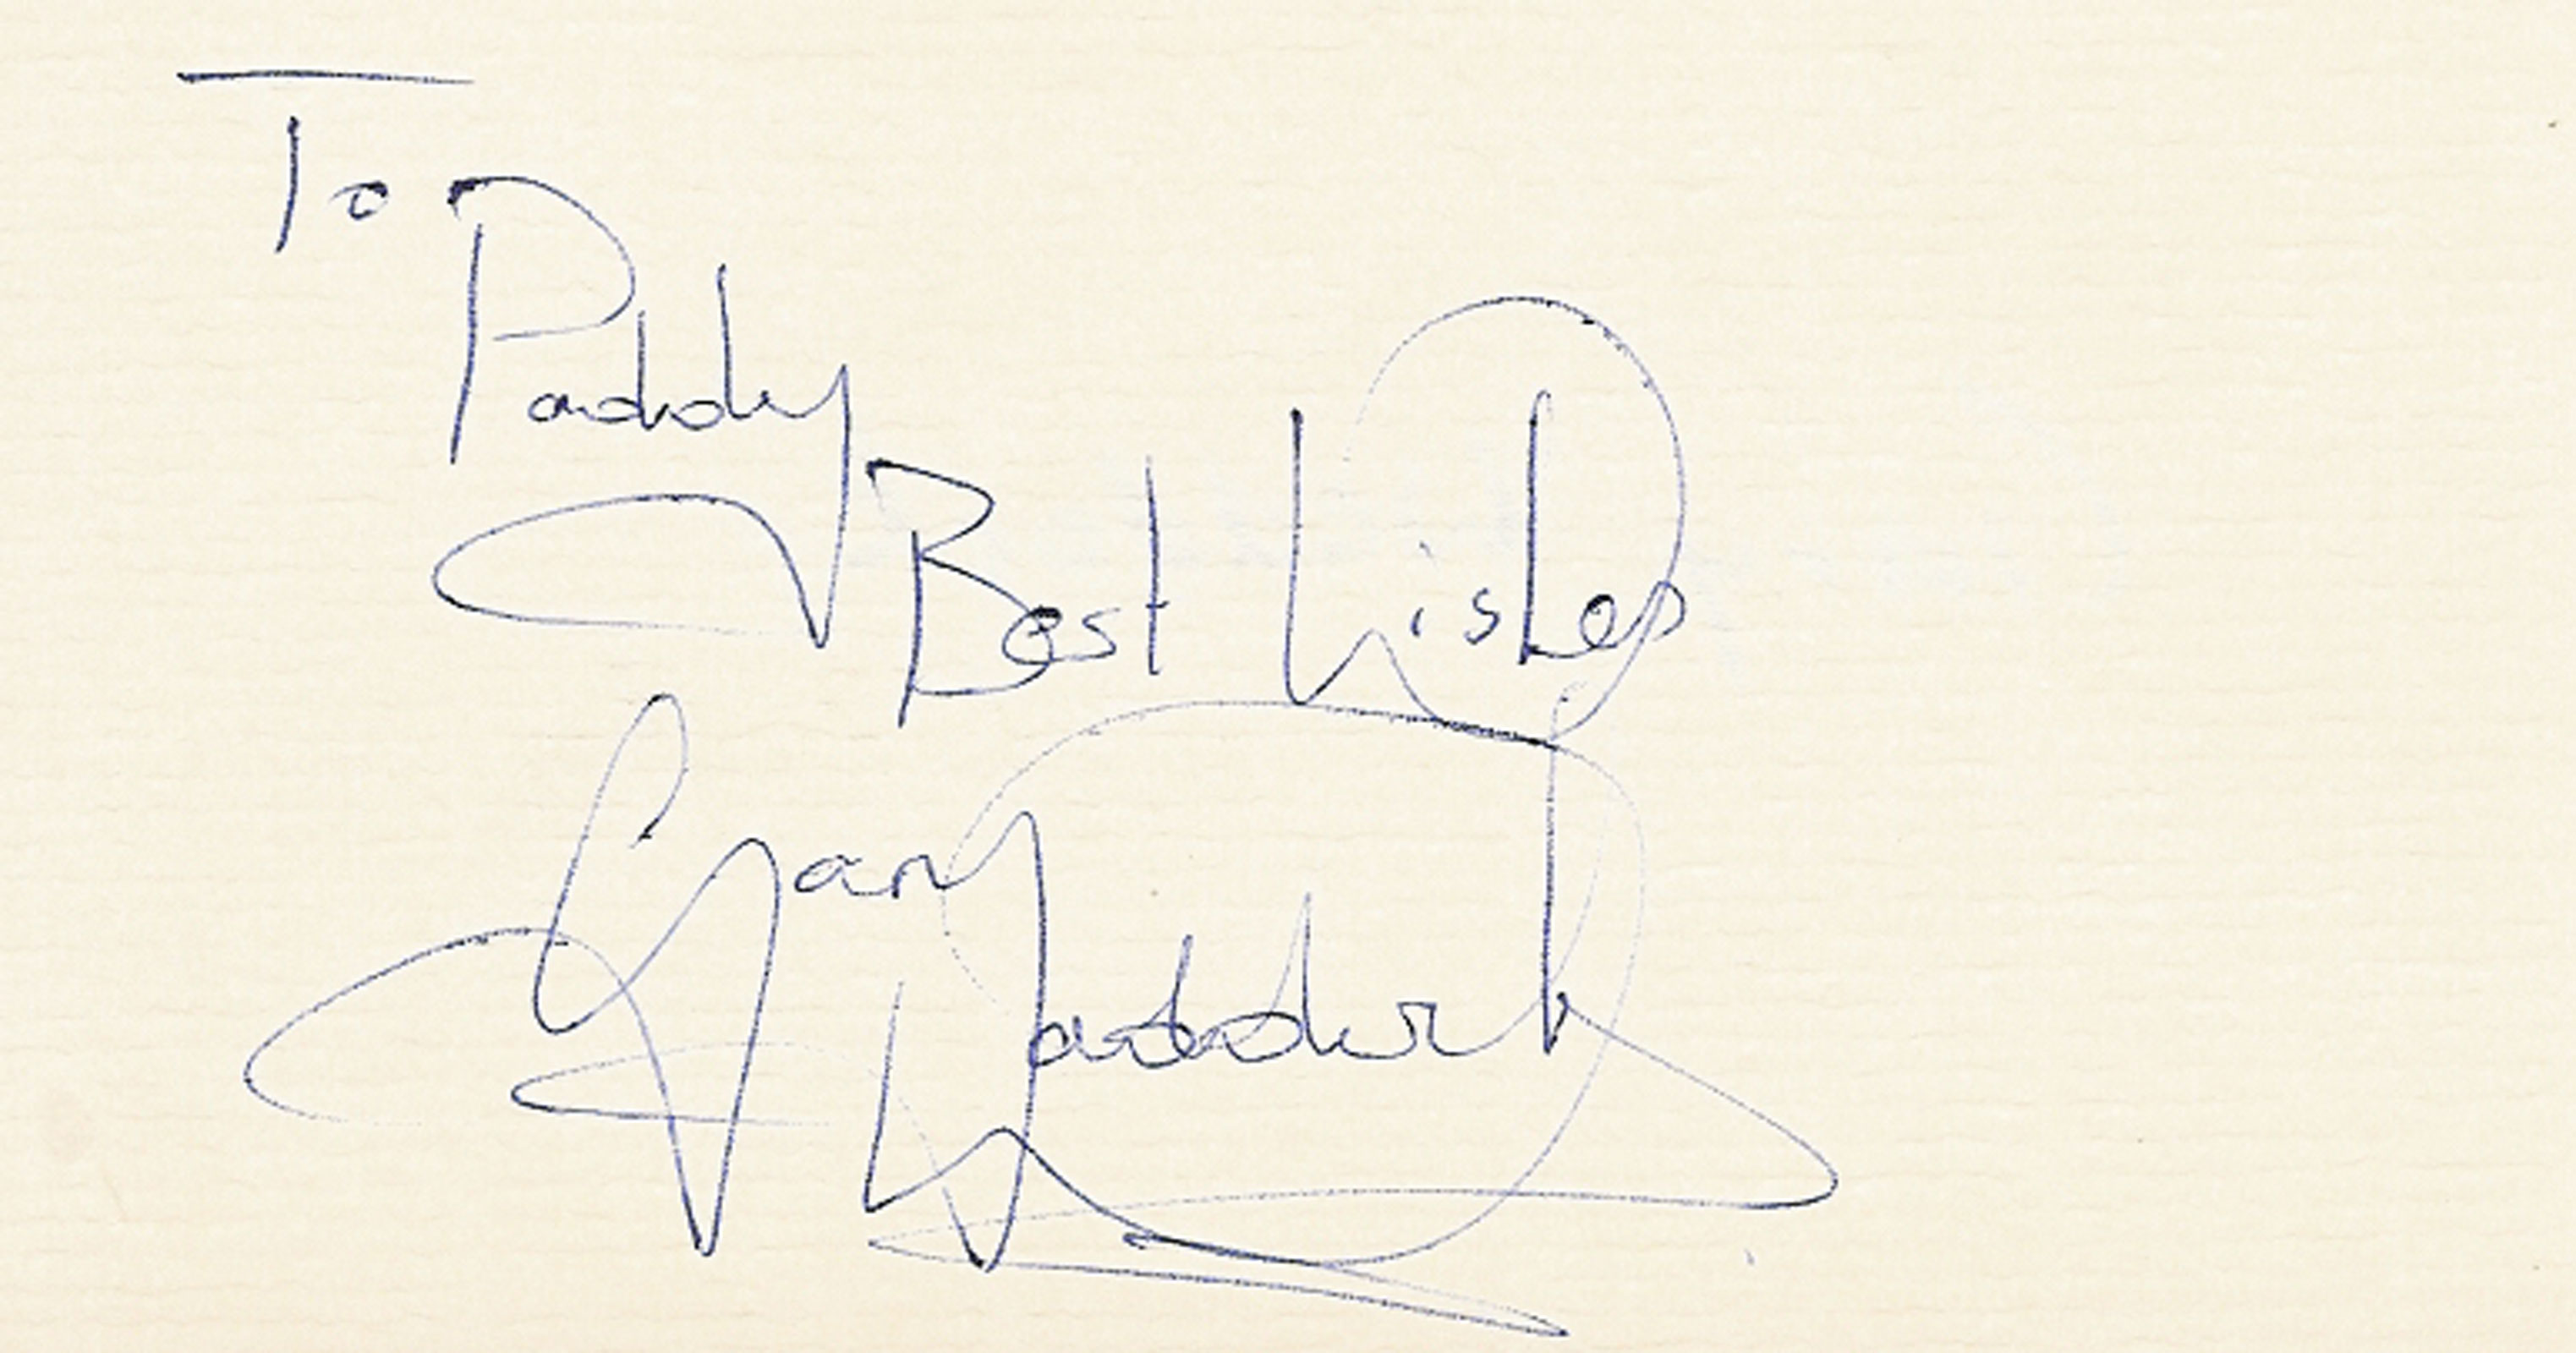 To
Paddy
Best Wishes
Gary
Waddock